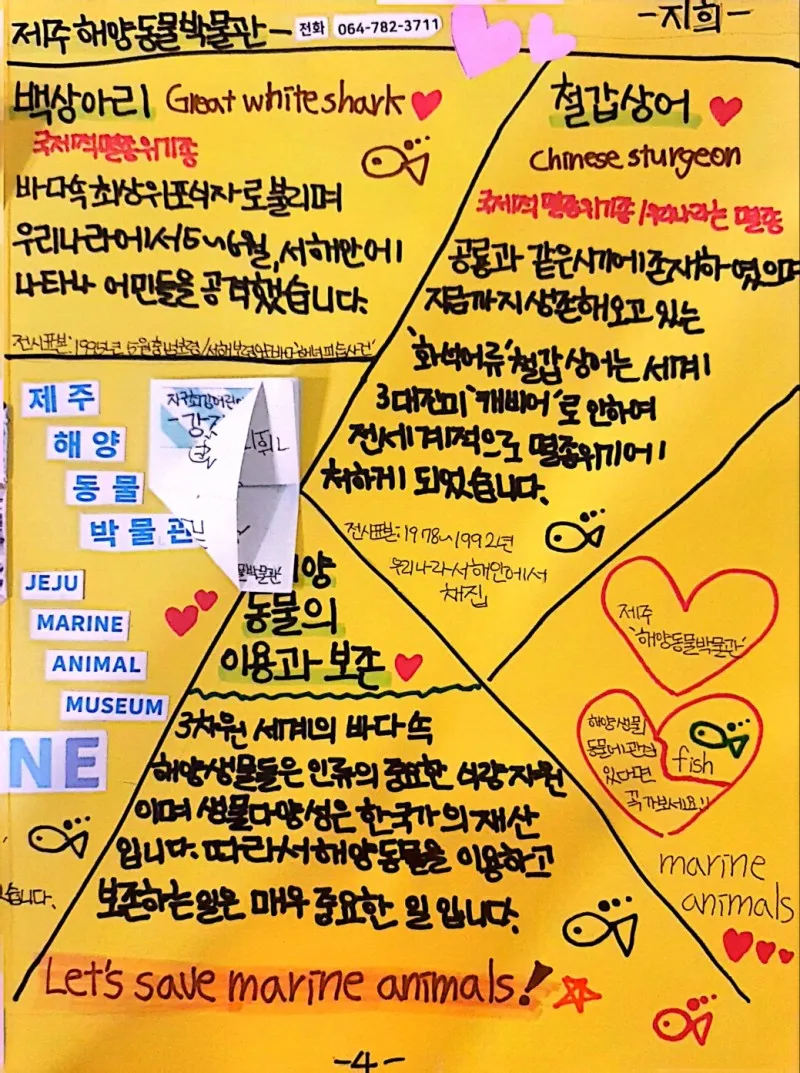 제주 해양동물박물관 - 전화 064-782-3711
-지희-
백상아리 Great white shark
국제적멸종위기종
바다속 최상위포식자로 불리며
우리나라에서 5~6월, 서해안에
나타나 어민들을 공격했습니다.
전시표본: 1995년 5월 충남보령/서해보령앞바다
철갑상어
Chinese sturgeon
국제적 멸종위기종/우리나라는 멸종
공룡과 같은시기에 존재하였으며
지금까지 생존해오고 있는
'화석어류' 철갑상어는 세계
3대진미 '캐비어'로 인하여
전세계적으로 멸종위기에
처하게 되었습니다.
전시표본: 1978~1992년
우리나라서해안에서
채집
제주
해양
동물
박물관
JEJU
MARINE
ANIMAL
MUSEUM
NE
양
동물의
이용과 보존
3차원 세계의 바다속
해양생물들은 인류의 중요한 식량자원
이며 생물다양성은 한국가의 재산
입니다. 따라서 해양동물을 이용하고
보존하는일은 매우 중요한 일 입니다.
Let's save marine animals!
제주
'해양동물박물관'
해양생물,
동물에 관심
있다면
꼭가보세요!!
fish
marine
animals
습니다.
-4-